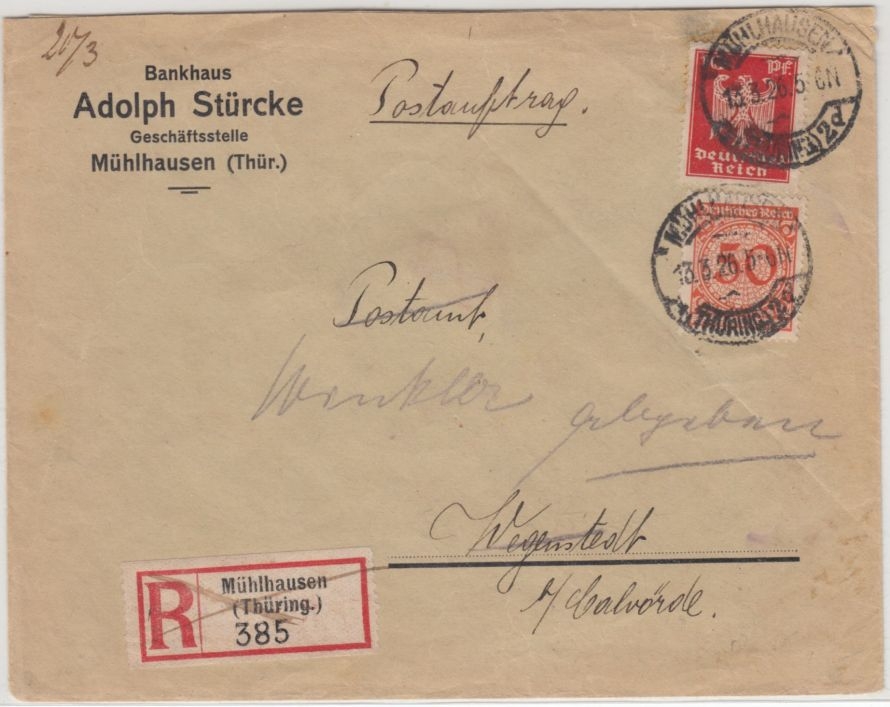 20/3
Bankhaus
Adolph Stürcke
Geschäftsstelle
Mühlhausen (Thür.)
Postauftrag.
Pf.
Deutsches
Reich
MÜHLHAUSEN
13.3.26.5-6N
(THÜRING.) 2d
Deutsches Reich
50
MÜHLHAUSEN
13.3.26.5-6N
(THÜRING.) 2d
Postamt,
Winkler
Wegenstedt
b/Calvörde.
R
Mühlhausen
(Thüring.)
385